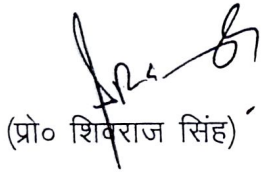 (प्रो० शिवराज सिंह)